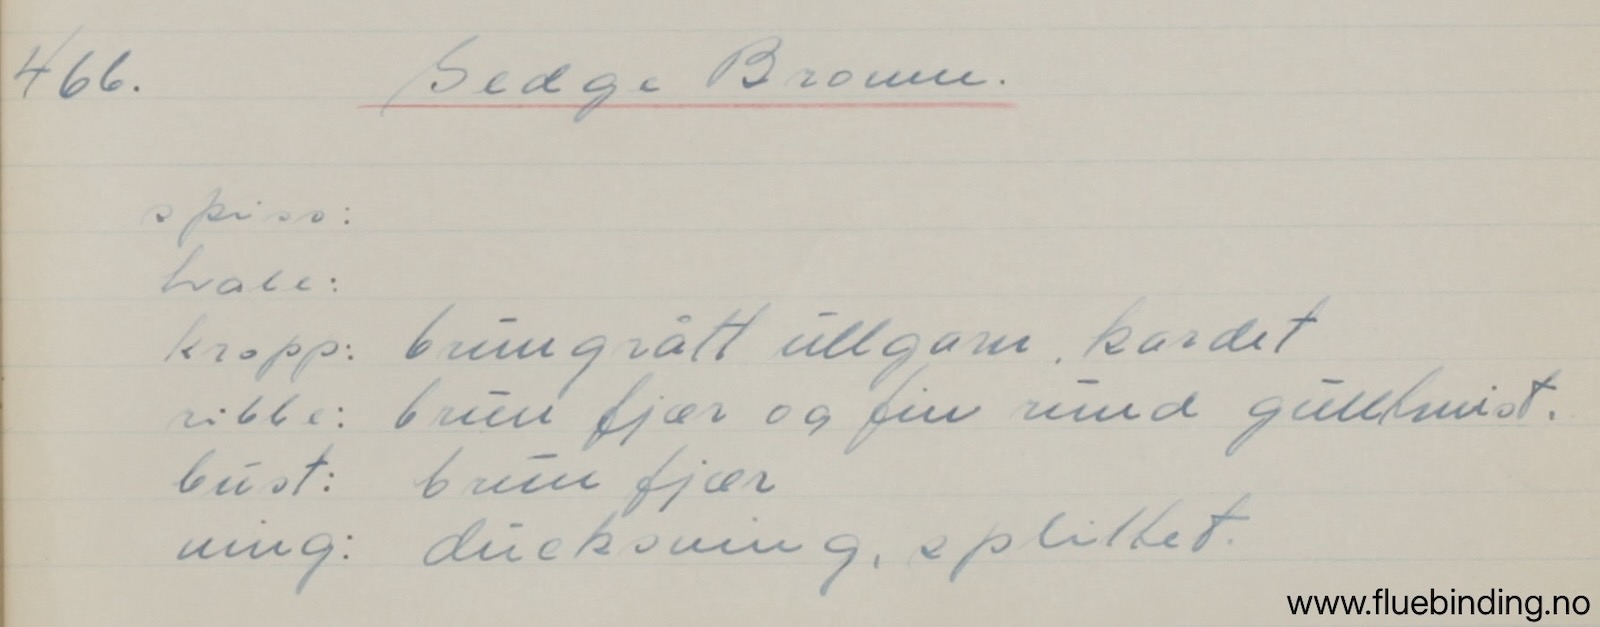 466. Sedge Brown.
spiss:
hale:
kropp: brungrått ullgarn, kardet
ribbe: brun fjær og fin rund gulltwist.
bust: brun fjær
wing: duckswing, splittet.
www.fluebinding.no